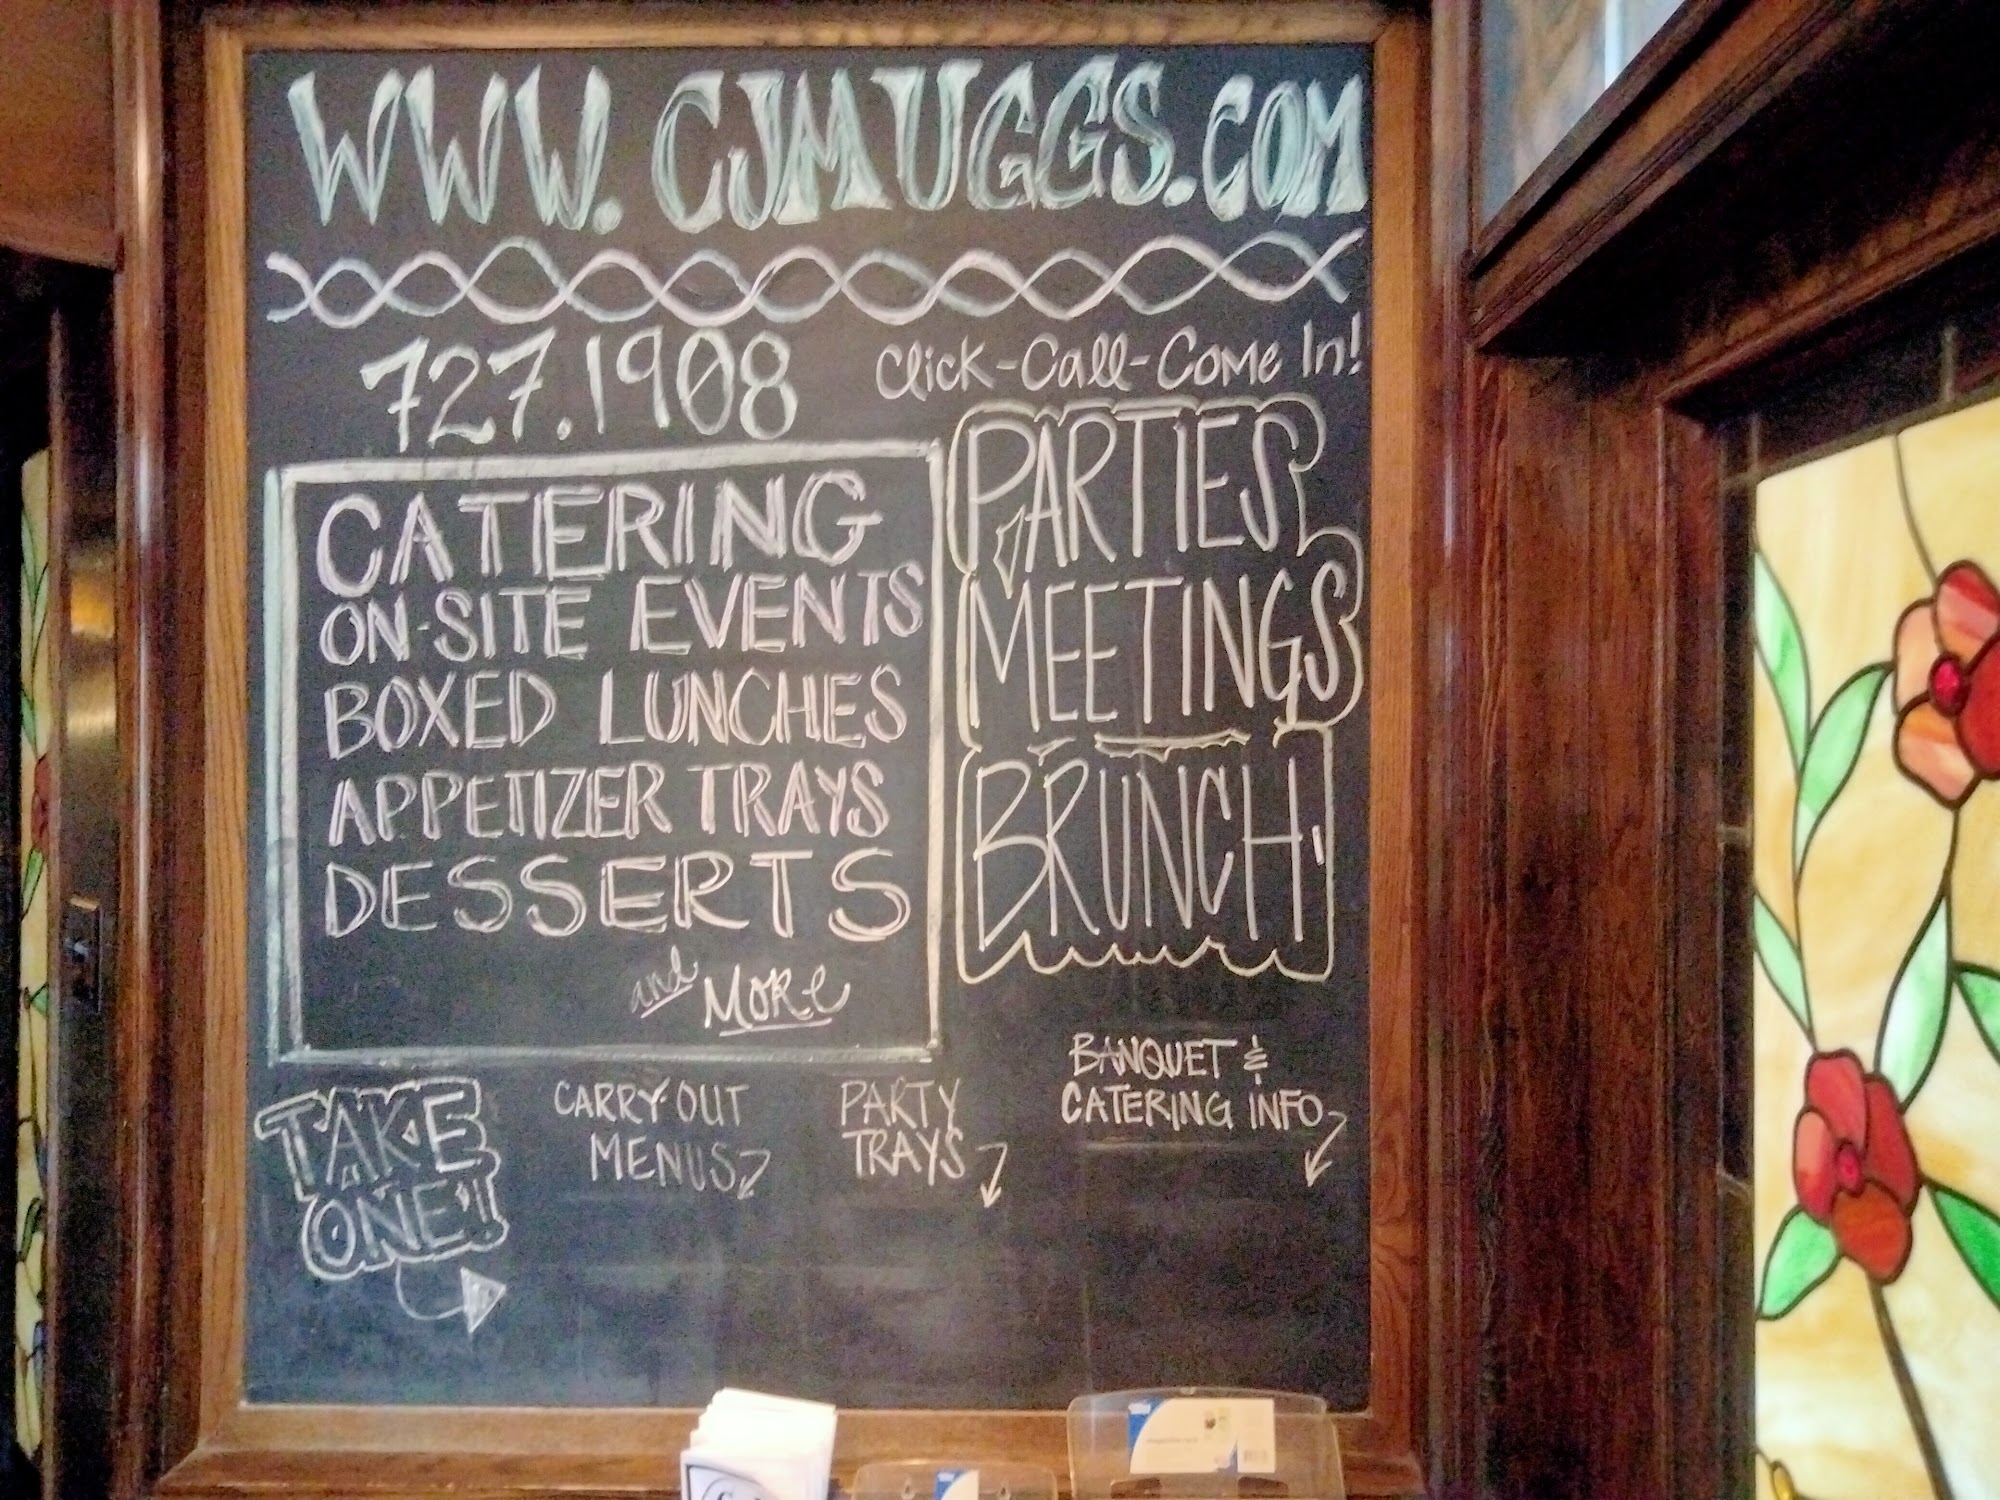 WWW.CJMUGGS.COM
727.1908
Click-Call-Come In!
CATERING
ON-SITE EVENTS
BOXED LUNCHES
APPETIZER TRAYS
DESSERTS
and MORE
PARTIES
MEETINGS
BRUNCH
TAKE
ONE!
CARRY-OUT
MENUS
PARTY
TRAYS
BANQUET &
CATERING INFO